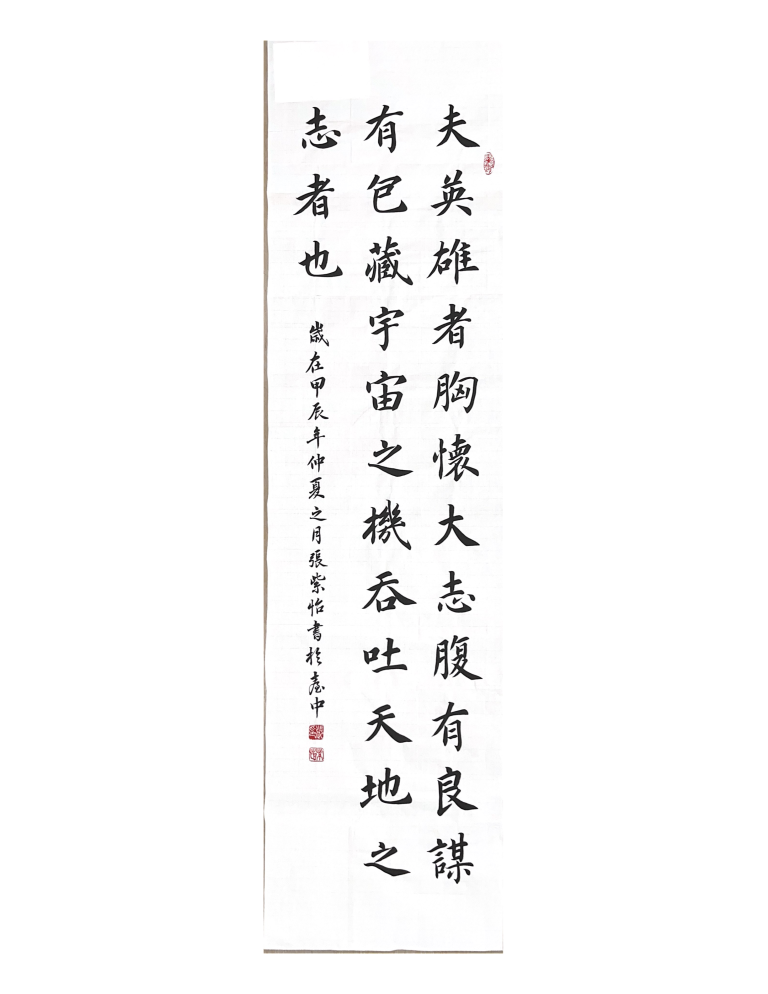 夫英雄者胸懷大志腹有良謀
有包藏宇宙之機吞吐天地之
志者也
歲在甲辰年仲夏之月張紫怡書於臺中